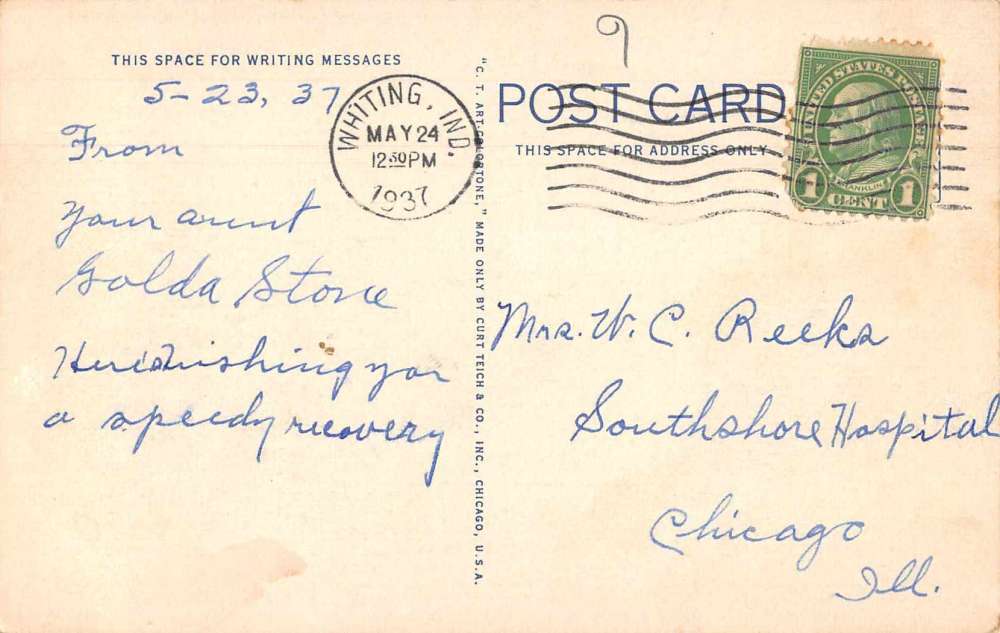 THIS SPACE FOR WRITING MESSAGES
5-23, 37
From
your aunt
Golda Stone
Here's wishing you
a speedy recovery
WHITING, IND.
MAY 24
12 30 PM
1937
"C. T. ART-COLORTONE," MADE ONLY BY CURT TEICH & CO., INC., CHICAGO, U.S.A.
9
POST CARD
THIS SPACE FOR ADDRESS ONLY
UNITED STATES POSTAGE
FRANKLIN
1 CENT 1
Mrs. W. C. Reeks
Southshore Hospital
Chicago
Ill.